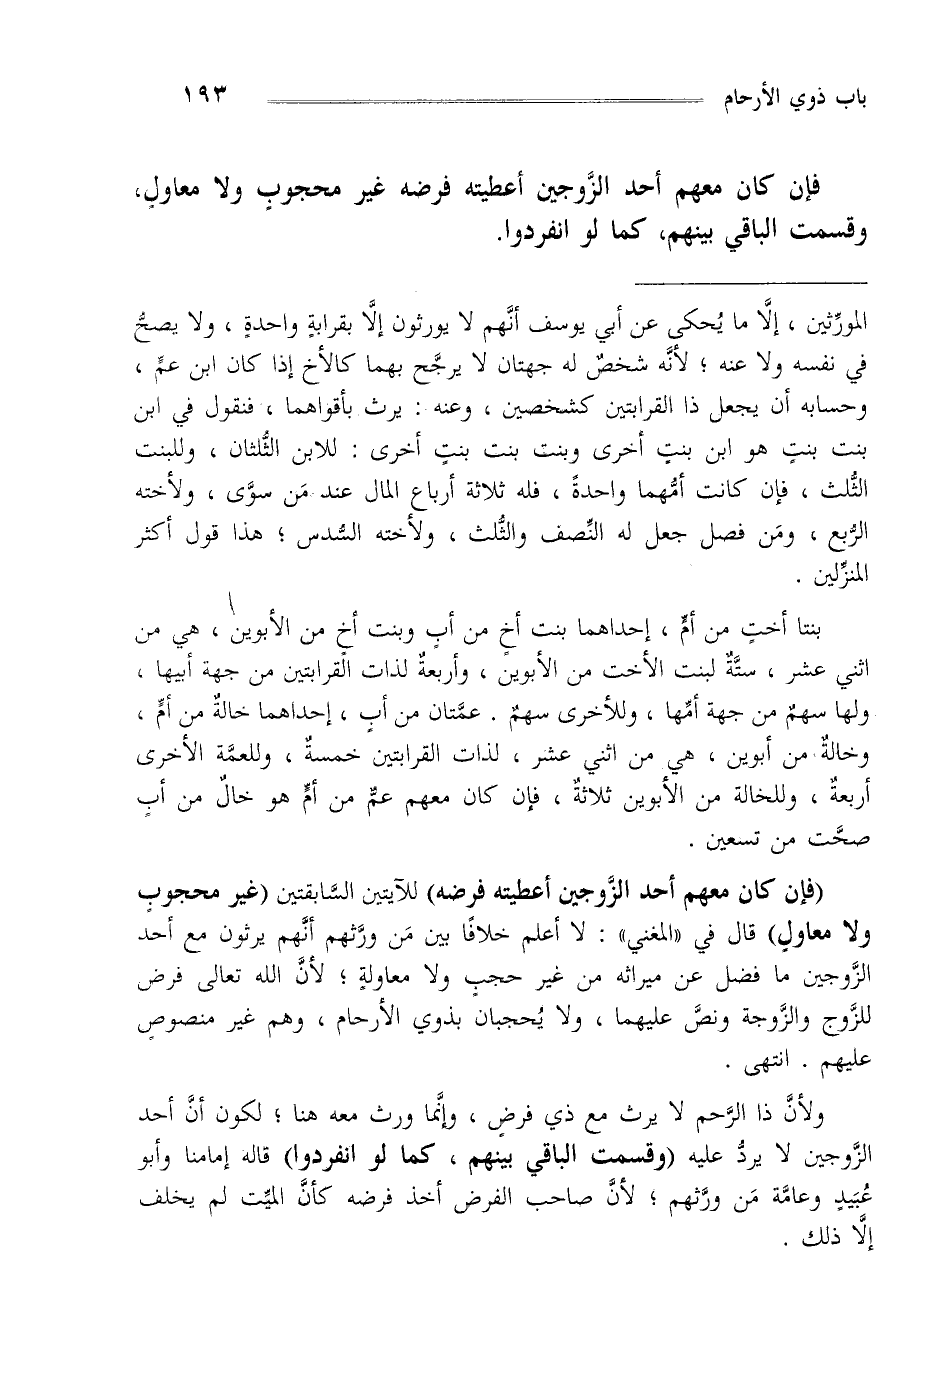 باب ذوي الأرحام ١٩٣
فإن كان معهم أحد الزَّوجين أعطيته فرضه غير محجوبٍ ولا معاولٍ،
وقسمت الباقي بينهم، كما لو انفردوا.
المورِّثين ، إلَّا ما يُحكى عن أبي يوسف أنَّهم لا يورثون إلَّا بقرابةٍ واحدةٍ ، ولا يصحُّ
في نفسه ولا عنه ؛ لأنَّه شخصٌ له جهتان لا يرجَّح بهما كالأخ إذا كان ابن عمٍّ ،
وحسابه أن يجعل ذا القرابتين كشخصين ، وعنه : يرث بأقواهما ، فنقول في ابن
بنت بنتٍ هو ابن بنتٍ أخرى وبنت بنت بنتٍ أخرى : للابن الثُّلثان ، وللبنت
الثُّلث ، فإن كانت أمُّهما واحدةً ، فله ثلاثة أرباع المال عند مَن سوَّى ، ولأخته
الرُّبع ، ومَن فصل جعل له النِّصف والثُّلث ، ولأخته السُّدس ؛ هذا قول أكثر
المنزِّلين .
بنتا أختٍ من أمٍّ ، إحداهما بنت أخٍ من أبٍ وبنت أخٍ من الأبوين ، هي من
اثني عشر ، ستَّةٌ لبنت الأخت من الأبوين ، وأربعةٌ لذات القرابتين من جهة أبيها ،
ولها سهمٌ من جهة أمِّها ، وللأخرى سهمٌ . عمَّتان من أبٍ ، إحداهما خالةٌ من أمٍّ ،
وخالةٌ من أبوين ، هي من اثني عشر ، لذات القرابتين خمسةٌ ، وللعمَّة الأخرى
أربعةٌ ، وللخالة من الأبوين ثلاثةٌ ، فإن كان معهم عمٌّ من أمٍّ هو خالٌ من أبٍ
صحَّت من تسعين .
(فإن كان معهم أحد الزَّوجين أعطيته فرضه) للآيتين السَّابقتين (غير محجوبٍ
ولا معاولٍ) قال في «المغني» : لا أعلم خلافًا بين مَن ورَّثهم أنَّهم يرثون مع أحد
الزَّوجين ما فضل عن ميراثه من غير حجبٍ ولا معاولةٍ ؛ لأنَّ الله تعالى فرض
للزَّوج والزَّوجة ونصَّ عليهما ، ولا يُحجبان بذوي الأرحام ، وهم غير منصوصٍ
عليهم . انتهى .
ولأنَّ ذا الرَّحم لا يرث مع ذي فرضٍ ، وإنَّما ورث معه هنا ؛ لكون أنَّ أحد
الزَّوجين لا يردُّ عليه (وقسمت الباقي بينهم ، كما لو انفردوا) قاله إمامنا وأبو
عُبَيدٍ وعامَّة مَن ورَّثهم ؛ لأنَّ صاحب الفرض أخذ فرضه كأنَّ الميِّت لم يخلف
إلَّا ذلك .